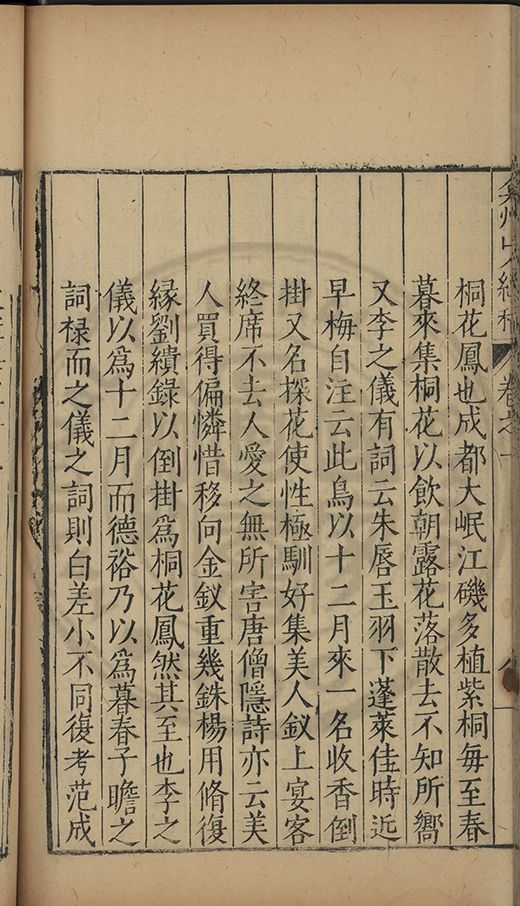 弇州史料 卷之一
桐花鳳也成都大岷江磯多植紫桐每至春
暮來集桐花以飲朝露花落散去不知所嚮
又李之儀有詞云朱唇玉羽下蓬萊佳時近
早梅自注云此鳥以十二月來一名收香倒
掛又名探花使性極馴好集美人釵上宴客
終席不去人愛之無所害唐僧隱詩亦云美
人買得偏憐惜移向金釵重幾銖楊用脩復
緣劉績錄以倒掛爲桐花鳳然其至也李之
儀以爲十二月而德裕乃以爲暮春子瞻之
詞祿而之儀之詞則白差小不同復考范成